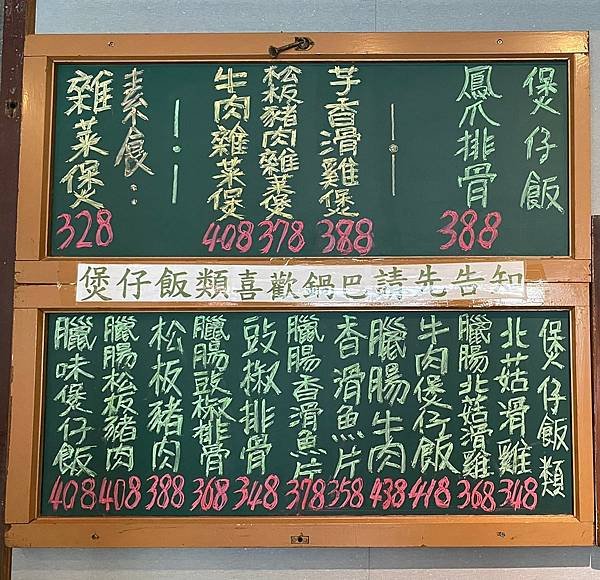 煲仔飯
鳳爪排骨
388
芋香滑雞煲
388
松板豬肉雜菜煲
378
牛肉雜菜煲
408
素食:
雜菜煲
328
煲仔飯類喜歡鍋巴請先告知
煲仔飯類
北菇滑雞
348
臘腸北菇滑雞
368
牛肉煲仔飯
418
臘腸牛肉
438
香滑魚片
358
臘腸香滑魚片
378
豉椒排骨
348
臘腸豉椒排骨
368
松板豬肉
388
臘腸松板豬肉
408
臘味煲仔飯
408